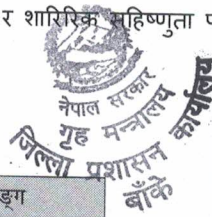 र शारिरिक सहिष्णुता प
नेपाल सरकार
गृह मन्त्रालय
जिल्ला प्रशासन कार्यालय
बाँके
ङ्ग